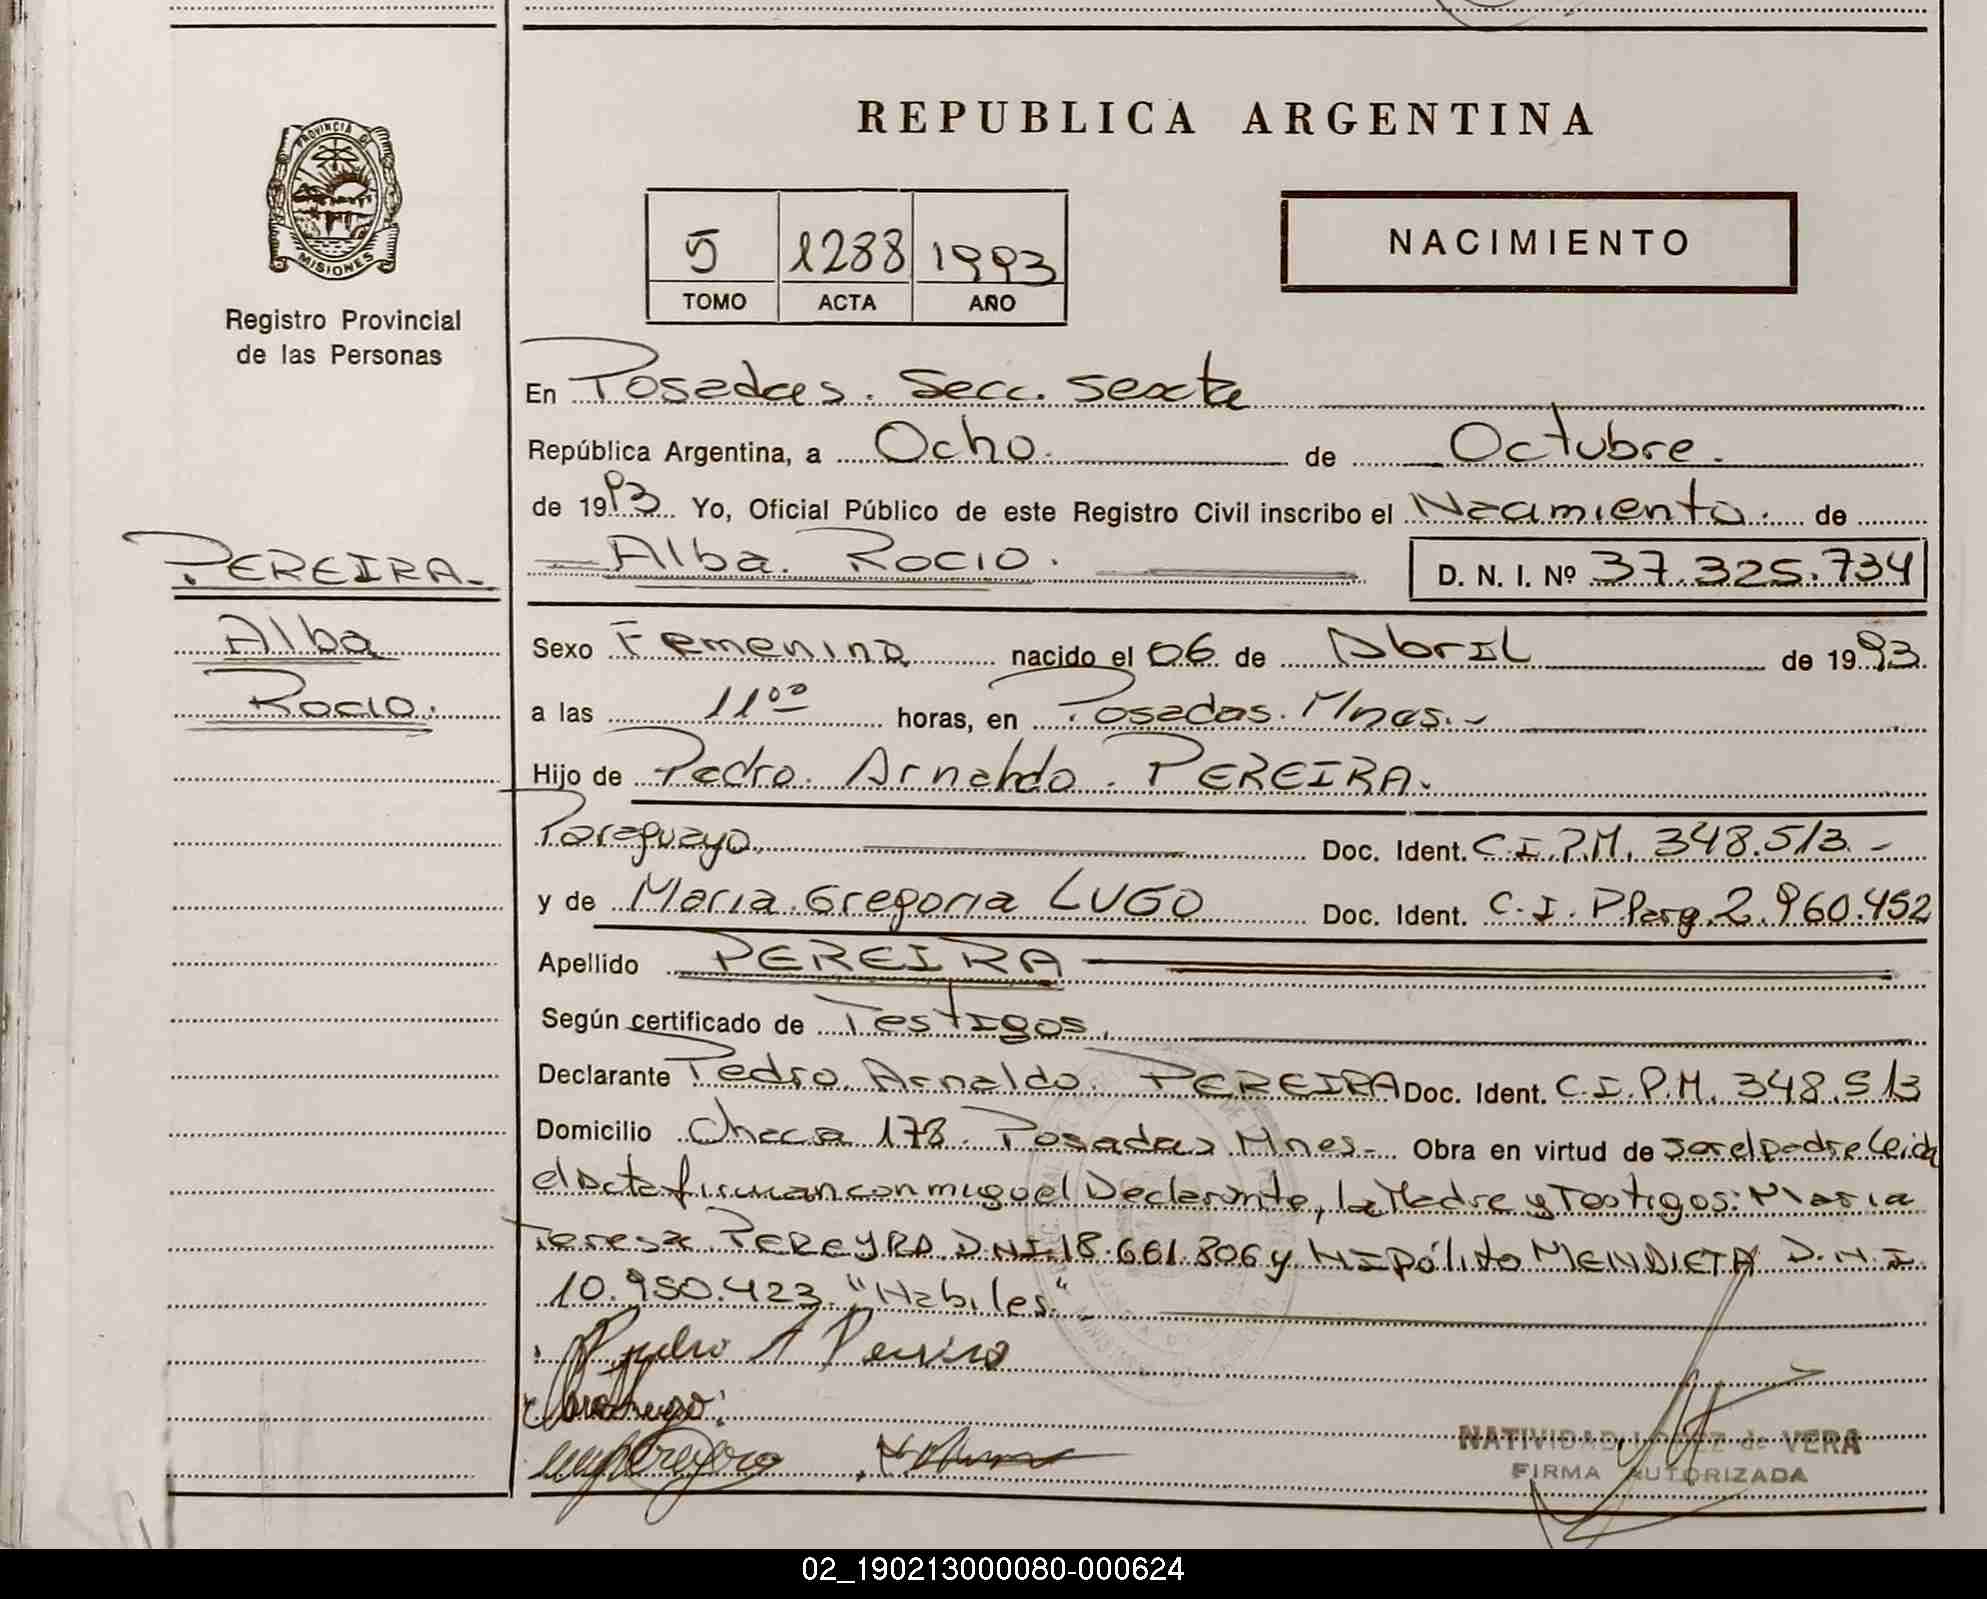 REPUBLICA ARGENTINA
PROVINCIA DE
MISIONES
Registro Provincial
de las Personas
5 1288 1993
TOMO ACTA AÑO
NACIMIENTO
En Posadas. Secc. Sexta
República Argentina, a Ocho. de Octubre.
de 1993. Yo, Oficial Público de este Registro Civil inscribo el Nacimiento. de
PEREIRA.
Alba. Rocio. D. N. I. Nº 37.325.734
Alba
Sexo Femenino nacido el 06 de Abril de 1993.
Rocio.
a las 11⁰⁰ horas, en Posadas. Mnes.-
Hijo de Pedro. Arnaldo. PEREIRA.
Paraguayo. Doc. Ident. C.I.P.M. 348.513.-
y de Maria Gregoria LUGO Doc. Ident. C.I. P.Parg. 2.960.452
Apellido PEREIRA
Según certificado de Testigos.
Declarante Pedro Arnaldo. PEREIRA Doc. Ident. C.I.P.M. 348.513
Domicilio Chaca 178. Posadas Mnes.- Obra en virtud de ser el padre leida
el Acta firman conmigo el Declarante, la Madre y Testigos: Maria
Teresa PEREYRA D.N.I. 18.661.806 y HIPólito MENDIETA D.N.I.
10.950.423. "Habiles."
Pedro A Pereira
NATIVIDAD LOPEZ de VERA
FIRMA AUTORIZADA
02_190213000080-000624